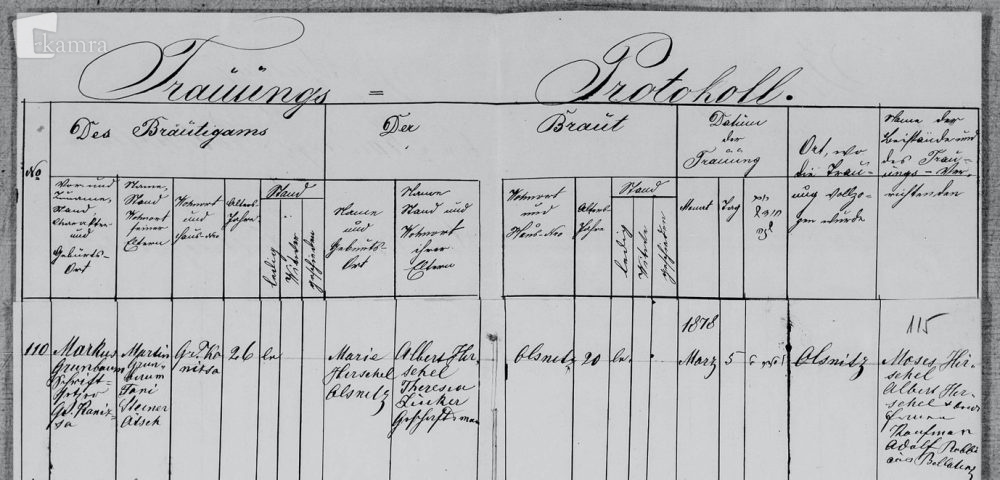 kamra
Trauungs = Protokoll.
Des Bräutigams
Der Braut
Datum
der
Trauung
Ort, wo
die Trau-
ung vollzo-
gen wurde
Name der
Beistände und
des Trau-
ungs-Ver-
richtenden
No
Vor und
Zuname,
Stand,
Charakter
und
Geburts-
Ort
Name,
Stand
Wohnort
seiner
Eltern
Wohnort
und
Haus-No
Alters-
Jahre
Stand
ledig
Witwer
geschieden
Name
und
Geburts-
Ort
Name
Stand und
Wohnort
ihrer
Eltern
Wohnort
und
Haus-No
Alters
Jahre
Stand
ledig
Witwe
geschieden
Monat
Tag
1878
115
110
Markus
Grünbaum
Schrift-
setzer
Gr. Kanix-
sa
Martin
Grün-
baum
Fani
Steiner
Gr. Ka
nixsa
26
le
Marie
Herschel
Olsnitz
Albert Her-
schel
Theresia
Geschäftsman
Olsnitz
20
le.
März
5
Olsnitz
Moses Hir-
schel
Albert Her-
schel
Kaufman
Adolf
aus Bellatinz